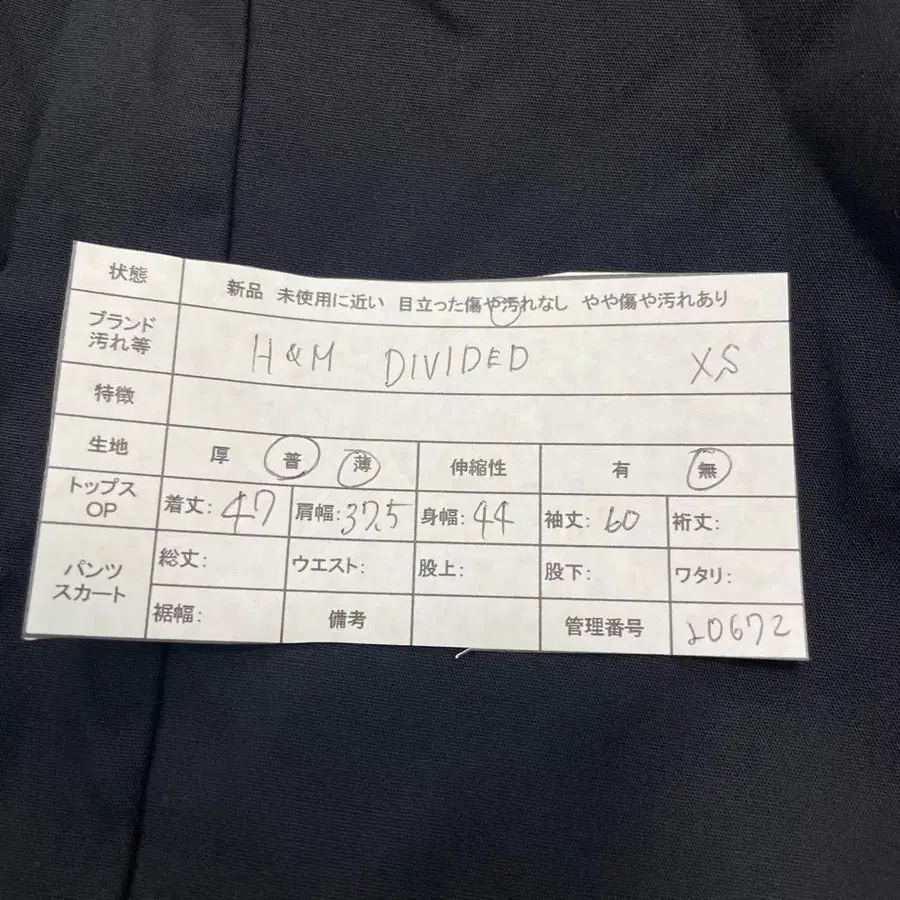 状態 新品 未使用に近い 目立った傷や汚れなし やや傷や汚れあり
ブランド
汚れ等 H&M DIVIDED XS
特徴
生地 厚 普 薄 伸縮性 有 無
トップス
OP 着丈: 47 肩幅: 37.5 身幅: 44 袖丈: 60 裄丈:
パンツ
スカート 総丈: ウエスト: 股上: 股下: ワタリ:
裾幅: 備考 管理番号 20672